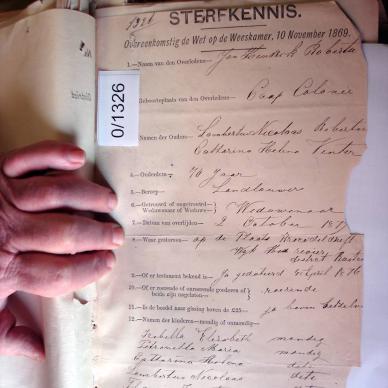 1326
STERFKENNIS.
Overeenkomstig de Wet op de Weeskamer, 10 November 1869.
1.—Naam van den Overledene— Jan Hendrik Roberts
0/1326
Geboorteplaats van den Overledene— Caap Colonie
Namen der Ouders— Lambertus Nicolaas
Catharina Helena Venter
4.—Ouderdom— 70 Jaar
5.—Beroep— Landbouwer
6.—Getrouwd of ongetrouwd—
Weduwenaar of Weduwe—} Weduwenaar
7.—Datum van overlijden— 2 October 187
8.—Waar gestorven— op de Plaats
district
9.—Of er testament bekend is— Ja gedateerd April 1876
10.—Of er roerende of onroerende goederen of
beide zijn nagelaten—} roerende
11.—Is de boedel naar gissing boven de £25— ja boven
12.—Namen der kinderen—mondig of onmondig—
Isabella Elizabeth mondig
Petronella Maria mondig
Catharina Helena dito
Lambertus Nicolaas dito